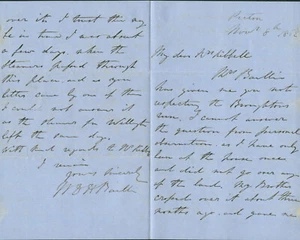 Picton
Novr 8th 186
My dear Mr Kebbell
Mrs Baillie
has given me your note
respecting the Broughtons
I cannot answer
the question from personal
observation as I have only
been at the house once
and did not go over any
of the land. My Brother
over it about three
months ago and gave me
over it. I trust this may
be in time I was absent
a few days when the
Steamer passed through
this place and as your
letter came by one of them
I could not answer it
as the steamer for Wellington
left the same day.
With kind regards to Mrs Kebbell
I remain
Yours sincerely
Baillie